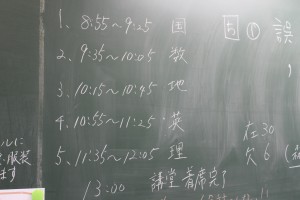 1、8:55～9:25 国
2、9:35～10:05 数
3、10:15～10:45 地
4、10:55～11:25 英
5、11:35～12:05 理
13:00 講堂 着席完了
5 ① 誤
在30
欠6
ルに
服装
ます